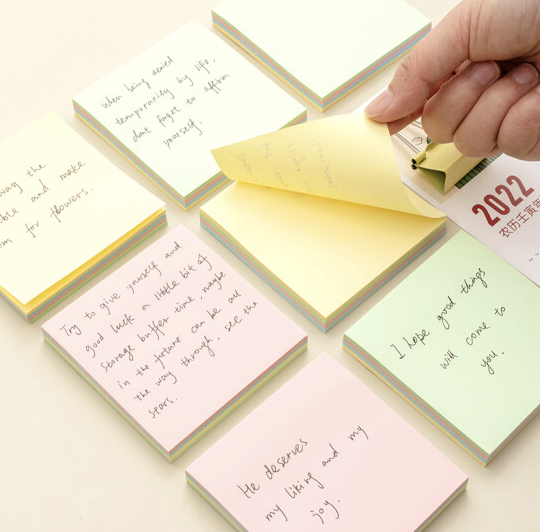 When being denied
temporarily by life,
dont forget to affirm
yourself.
away the
and make
for flowers.
Try to give yourself and
good luck a little bit of
storage buffer time, maybe
in the fortune can be all
the way through, see the
stars.
2022
农历壬寅年
I hope good things
will come to
you.
He deserves
my liking and my
joy.